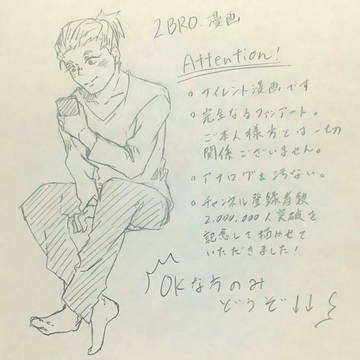 2BRO. 漫画
Attention!
○ サイレント漫画です
○ 完全なるファンアート。
ご本人様方とは一切
関係ございません。
○ アナログ&汚ない。
○ チャンネル登録者数
2.000.000人突破を
記念して描かせて
いただきました!
OKな方のみ
どうぞ↓↓